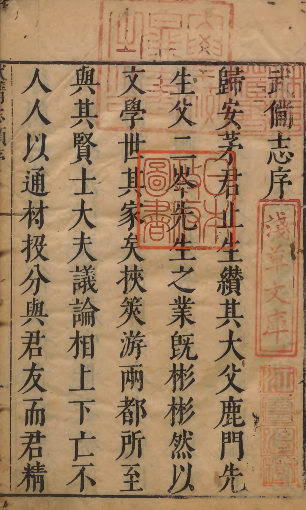 武備志序
歸安茅君止生纘其大父鹿門先
生父二岑先生之業既彬彬然以
文學世其家矣挾筴游兩都所至
與其賢士大夫議論相上下亡不
人人以通材投分與君友而君精
淺草文庫
圖書